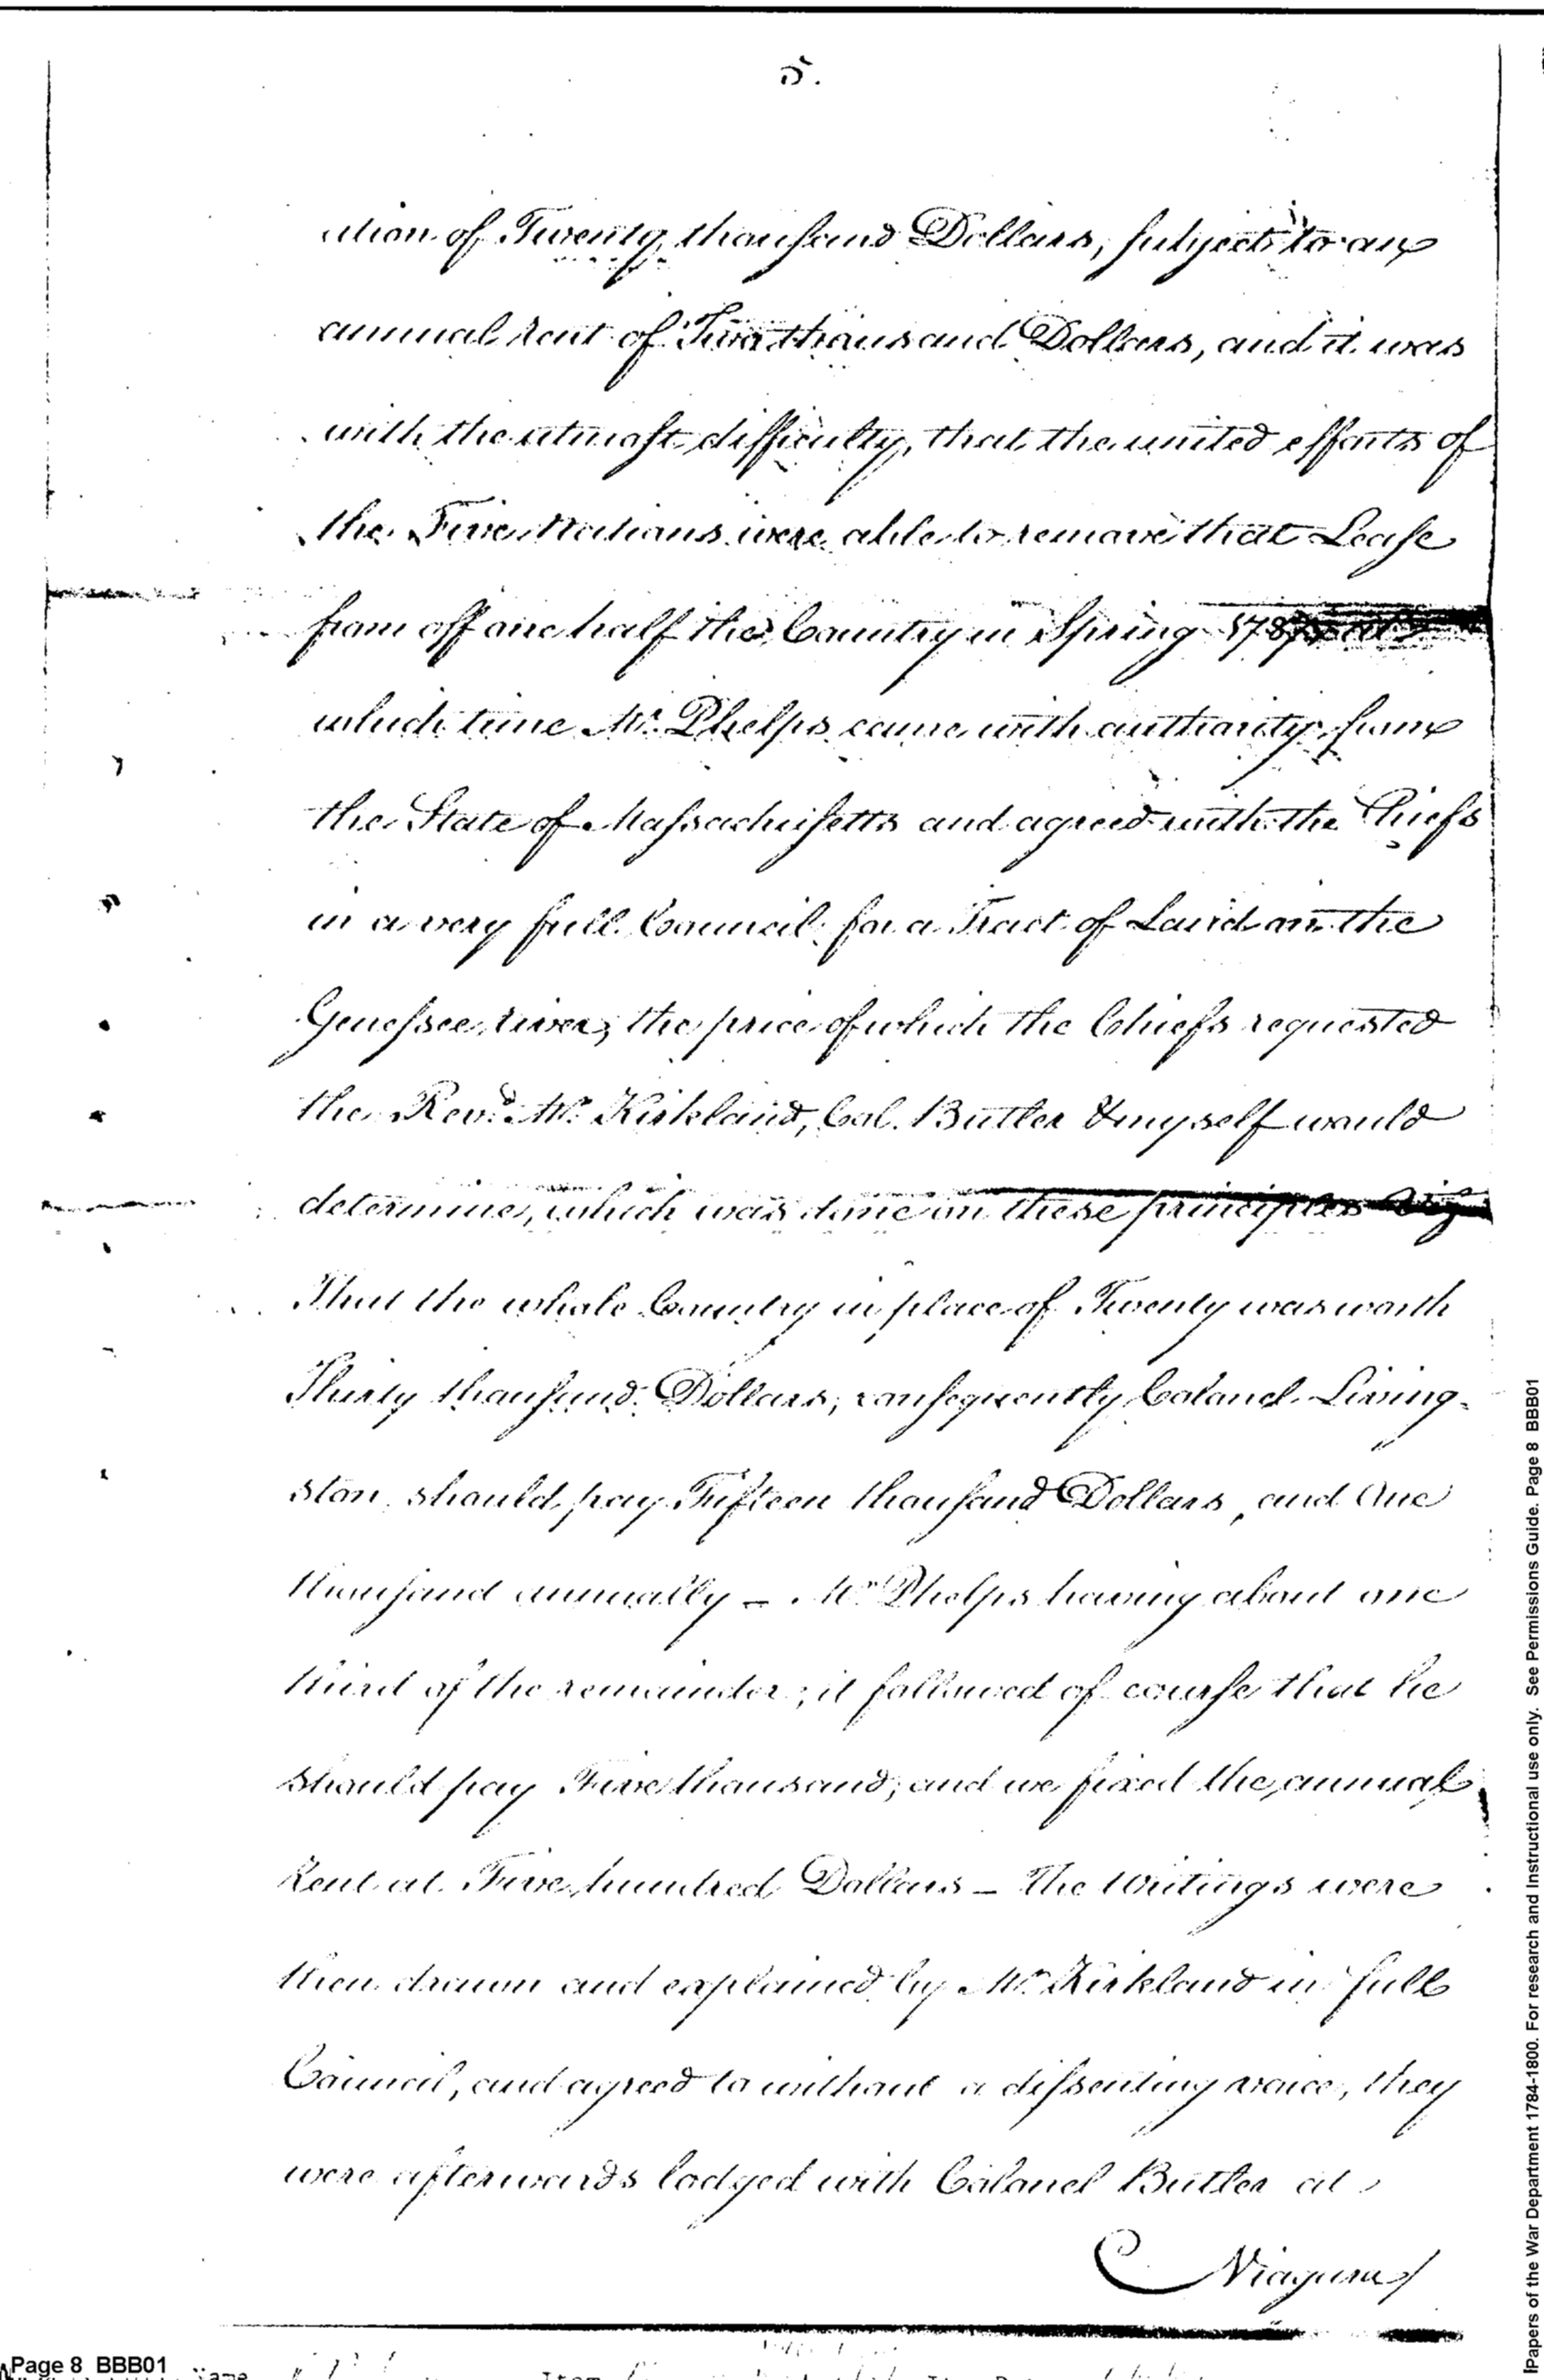 5.
ation of Twenty thousand Dollars, subject to an
annual rent of Two thousand Dollars, and it was
with the utmost difficulty, that the united efforts of
the Five Nations were able to remove that Lease
from off one half the Country in Spring 1787 at
which time Mr. Phelps came with authority from
the State of Massachusetts and agreed with the Chiefs
in a very full Council for a Tract of Land on the
Genessee river, the price of which the Chiefs requested
the Revd. Mr. Kirkland, Col. Butler & myself would
determine, which was done on these principles Viz
That the whole Country in place of Twenty was worth
Thirty thousand Dollars, consequently Colonel Living-
ston should pay Fifteen thousand Dollars, and One
thousand annually – Mr Phelps having about one
third of the remainder; it followed of course that he
should pay Five thousand; and we fixed the annual
Rent at Five hundred Dollars – The Writings were
then drawn and explained by Mr Kirkland in full
Council, and agreed to without a dissenting voice, they
were afterwards lodged with Colonel Butler at
Niagara
Papers of the War Department 1784-1800. For research and Instructional use only. See Permissions Guide. Page 8 BBB01
Page 8 BBB01